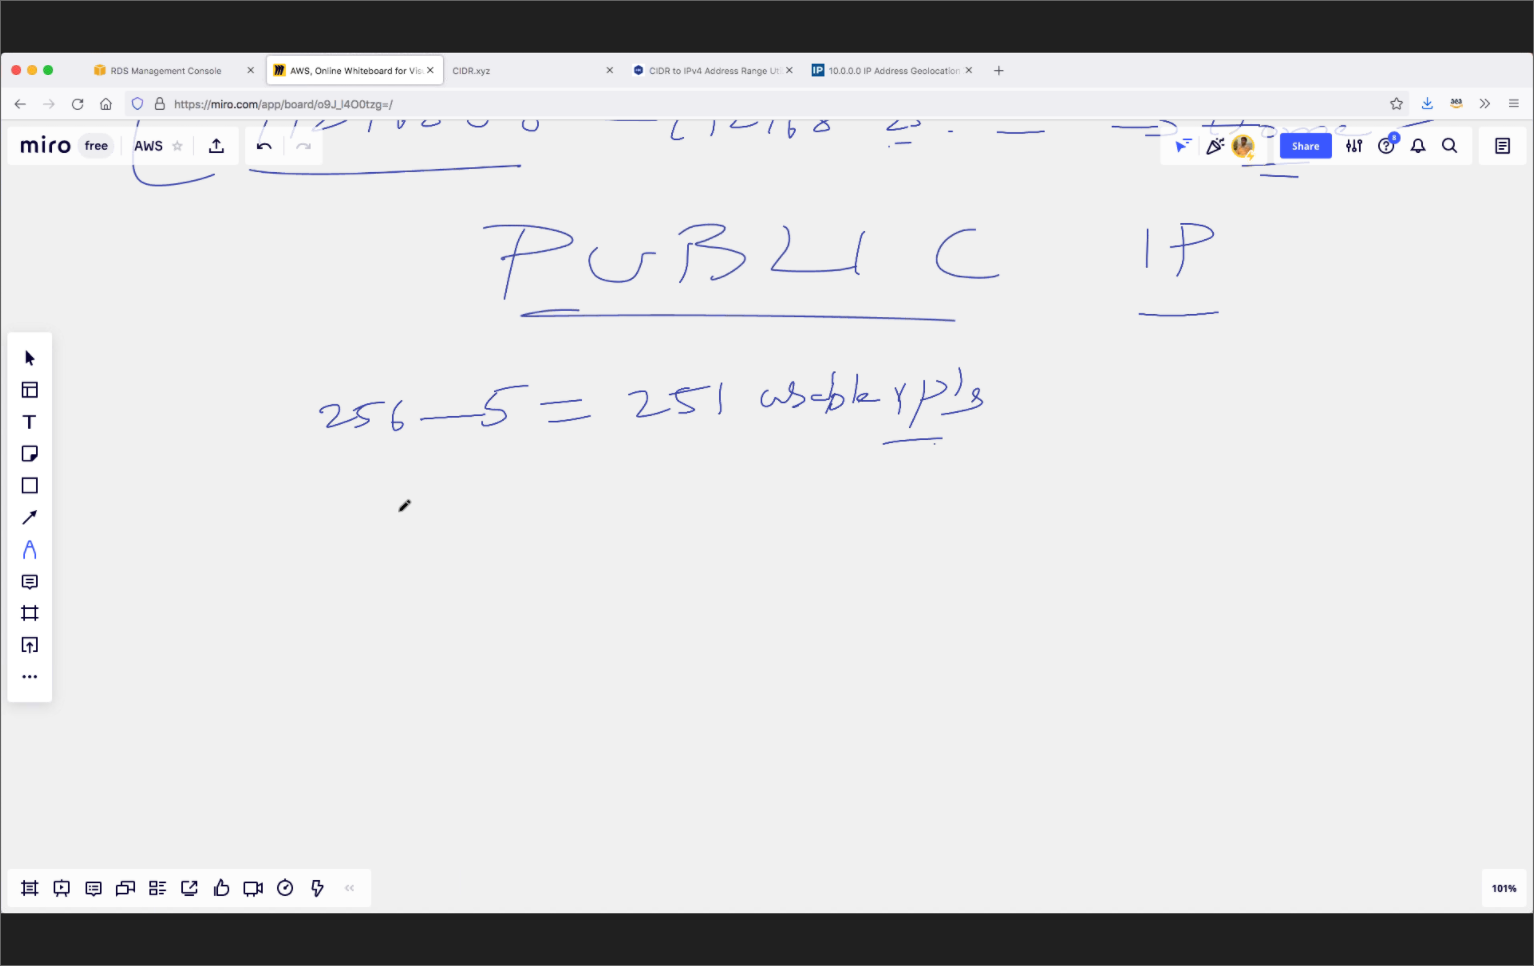 RDS Management Console
AWS, Online Whiteboard for Vis
CIDR.xyz
CIDR to IPv4 Address Range Ut
IP 10.0.0.0 IP Address Geolocation
https://miro.com/app/board/o9J_l4O0tzg=/
miro free AWS
Share
8
PUBLIC IP
256 — 5 = 251 usable IP's
T
101%